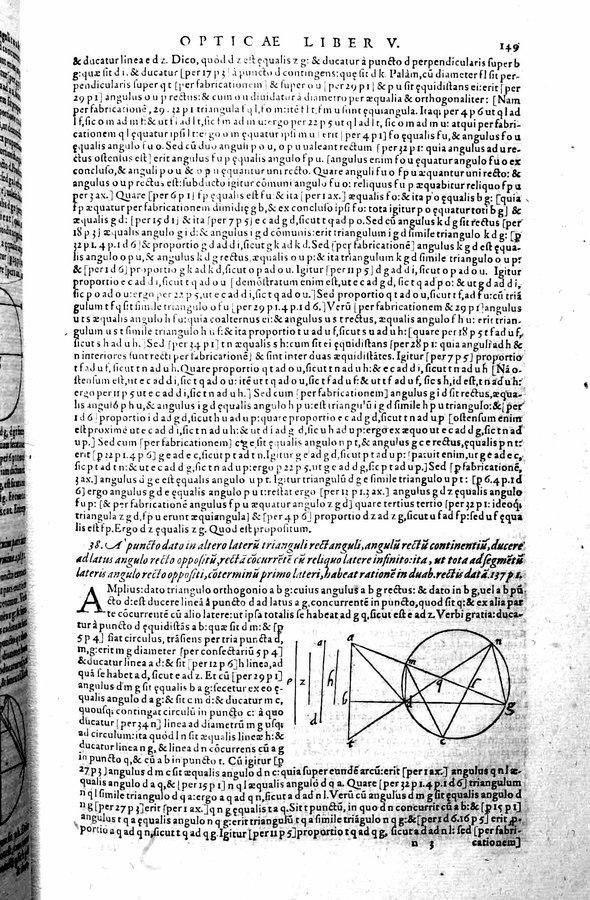 OPTICAE LIBER V. 149
& ducatur linea e d z. Dico, quòd d z est æqualis z g: & ducatur à puncto d perpendicularis super b
g: quæ sit d i. & ducatur [per 17 p 3] à puncto d contingens: quæ sit d k. Palàm, cũ diameter f l sit per-
pendicularis super q t [per fabricationem] & super o u [per 29 p 1] & p u sit æquidistans ei: erit [per
29 p 1] angulus o u p rectus: & cum o u diuidatur à diametro per æqualia & orthogonaliter: [Nam
per fabricationẽ, 29. 32 p 1 triangula f q l, f o m: itẽ f l t, f m u sunt æquiangula. Itaq; per 4 p 6 ut q l ad
l f, sic o m ad m f: & ut f l ad l t, sic f m ad m u: ergo per 22 p 5 ut q l ad l t, sic o m ad m u: atqui per fabri-
cationem q l æquatur ipsi l t: ergo o m æquatur ipsi m u] erit [per 4 p 1] f o æqualis f u, & angulus f o u
æqualis angulo f u o. Sed cũ duo anguli p o u, o p u ualeant rectum [per 32 p 1: quia angulus ad u re-
ctus ostensus est] erit angulus f u p æqualis angulo f p u. [angulus enim f o u æquatur angulo f u o ex
concluso, & anguli p o u & o p u æquantur uni recto: Quare anguli f u o f p u æquantur uni recto: &
angulus o u p rectus est: subducto igitur cõmuni angulo f u o: reliquus f u p æquabitur reliquo f p u
per 3 ax.] Quare [per 6 p 1] f p æqualis est f u: & ita [per 1 ax.] æqualis f o: & ita p o æqualis b g: [quia
f p æquatur per fabricationem dimidię g b, & ex concluso ipsi f o: tota igitur p o æquatur toti b g] &
æqualis g d: [per 15 d 1] & ita [per 7 p 5] e c ad g d, sicut t q ad p o. Sed cũ angulus k d g sit rectus [per
18 p 3] & angulus g i d: & angulus i g d cõmunis: erit triangulum i g d simile triangulo k d g: [p
32 p 1. 4 p. 1 d 6] & proportio g d ad d i, sicut g k ad k d. Sed [per fabricationẽ] angulus k g d est æqua-
lis angulo o p u, & angulus k d g rectus, æqualis o u p: & ita triangulum k g d simile triangulo o u p:
& [per 1 d 6] proportio g k ad k d, sicut o p ad o u. Igitur [per 11 p 5] d g ad d i, sicut o p ad o u. Igitur
proportio e c ad d i, sicut t q ad o u [demõstratum enim est, ut e c ad g d, sic t q ad p o: & ut g d ad d i,
sic p o ad o u: ergo per 22 p 5, ut e c ad d i, sic t q ad o u.] Sed proportio q t ad o u, sicut t f, ad f u: cũ triã
gulum t f q sit simile triangulo o f u [per 29 p 1. 4 p. 1 d. 6.] Verũ [per fabricationem & 29 p 1] angulus
u t s æqualis angulo f u h: quia coalternus ei: & angulus u s t rectus, æqualis angulo f h u: erit trian-
gulum u s t simile triangulo h u f: & ita proportio t u ad u f, sicut s u ad u h: [quare per 18 p 5 t f ad u f,
sicut s h ad u h.] Sed [per 34 p 1] t n æqualis s h: cum sit ei æquidistans [per 28 p 1: quia anguli ad h &
n interiores sunt recti per fabricationẽ] & sint inter duas æquidistãtes. Igitur [per 7 p 5] proportio
t f ad u f, sicut t n ad u h. Quare proportio q t ad o u, sicut t n ad u h: & e c ad d i, sicut t n ad u h [Nã o-
stensum est, ut e c ad d i, sic t q ad o u: itẽ ut t q ad o u, sic t f ad u f: & ut t f ad u f, sic s h, id est, t n ad u h:
ergo per 11 p 5 ut e c ad d i, sic t n ad u h.] Sed cum [per fabricationem] angulus g i d sit rectus, æqua-
lis angulo p h u, & angulus i g d æqualis angulo h p u: est triangulũ i g d simile h p u triangulo: & [per
1 d 6] proportio d i ad g d, sicut h u ad u p: quare proportio e c ad g d, sicut t n ad u p [ostensum enim
est proximè ut e c ad d i, sic t n ad u h: & ut d i ad g d, sic u h ad u p: ergo ex æquo ut e c ad d g, sic t n ad
u p.] Sed cum [per fabricationem] c g e sit æqualis angulo n p t, & angulus g c e rectus, æqualis p n t:
erit [p 32 p 1. 4 p 6] g e ad e c, sicut p t ad t n. Igitur g e ad g d, sicut p t ad u p: [patuit enim, ut g e ad e c,
sic p t ad t n: & ut e c ad d g, sic t n ad u p: ergo p 22 p 5, ut g e ad d g, sic p t ad u p.] Sed [p fabricationẽ,
3 ax.] angulus d g e est æqualis angulo u p t. Igitur triangulũ d g e simile triangulo u p t: [p 6. 4 p. 1 d
6] ergo angulus g d e æqualis angulo p u t: restat ergo [per 13 p 1. 3 ax.] angulus g d z æqualis angulo
f u p: [& per fabricationẽ angulus f p u æquatur angulo z g d] quare tertius tertio [per 32 p 1: ideoq;
triangula z g d, f p u erunt æquiangula] & [per 4 p 6] proportio d z ad z g, sicut u f ad f p: sed u f æqua
lis est f p. Ergo d z æqualis z g. Quod est propositum.
38. A' puncto dato in altero laterũ trianguli rectanguli, angulũ rectũ continentiũ, ducere
ad latus angulo recto oppositũ, rectã cõcurrẽtẽ cũ reliquo latere infinito: ita, ut tota ad segmẽtũ
lateris angulo recto oppositi, cõterminũ primo lateri, habeat rationẽ in duab. rectis datã. 137 p 1.
AMplius: dato triangulo orthogonio a b g: cuius angulus a b g rectus: & dato in b g, uel a b pũ
cto d: est ducere lineã à puncto d ad latus a g, concurrentẽ in puncto, quod sit q: & ex alia par
te cõcurrentẽ cũ alio latere: ut ipsa totalis se habeat ad g q, sicut est e ad z. Verbi gratia: duca-
tur à puncto d æquidistãs a b: quæ sit d m: & [p
5 p 4] fiat circulus, trãsiens per tria puncta d,
m, g: erit m g diameter [per consectariũ 5 p 4]
& ducatur linea a d: & sit [per 12 p 6] h linea, ad
quã se habet a d, sicut e ad z. Et cũ [per 29 p 1]
angulus d m g sit æqualis b a g: secetur ex eo ę-
qualis angulo d a g: & sit c m d: & ducatur m c,
quousq; contingat circulũ in puncto c: à quo
ducatur [per 34 n] linea ad diametrũ m g usq;
ad circulum: ita quòd l n sit æqualis lineæ h: &
ducatur linea n g, & linea d n cõcurrens cũ a g
in puncto q, & cũ a b in puncto t. Cũ igitur [p
27 p 3] angulus d m c sit æqualis angulo d n c: quia super eundẽ arcũ: erit [per 1 ax.] angulus q n l æ-
qualis angulo d a q, & [per 15 p 1] n q l æqualis angulo d q a. Quare [per 32 p 1. 4 p. 1 d 6] triangulum
n q l simile triangulo d q a: ergo a q ad q n, sicut a d ad n l. Verũ cũ angulus d m g sit æqualis angulo d
n g [per 27 p 3] erit [per 1 ax.] q n g æqualis t a q. Sit t punctũ, in quo d n concurrit cũ a b: & [p 15 p 1]
angulus t q a æqualis angulo n q g: erit triangulũ t q a simile triãgulo n q g: & [per 1 d 6. 16 p 5] erit p-
portio a q ad q n, sicut t q ad q g. Igitur [per 11 p 5] proportio t q ad q g, sicut a d ad n l: sed [per fabri-
n 3 cationem]
a
n
m
e
z
h
q
f
b
d
g
d
t
c